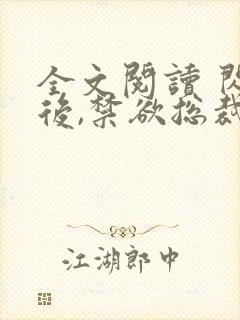 全文閱讀 閃
後,禁欲総裁
江湖郎中